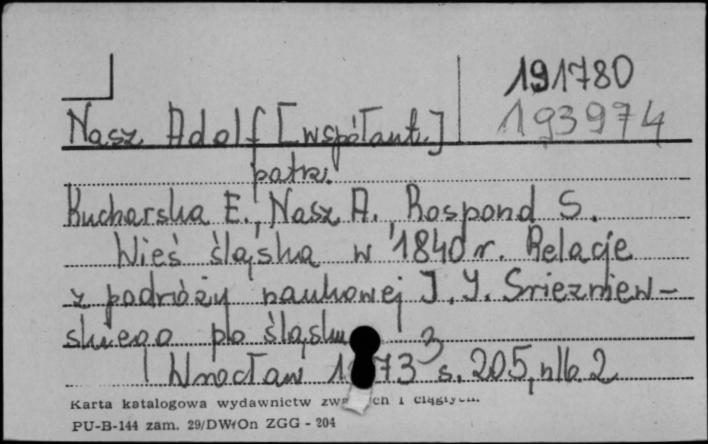 191780
193974
Nasz Adolf [współaut.]
patrz:
Kucharska E., Nasz A., Rospond S.
Wieś śląska w 1840 r. Relacje
z podróży naukowej J. I. Sriezniew-
skiego po śląsku
Wrocław 1973 s. 205, nlb. 2
Karta katalogowa wydawnictw zwartych i ciągłych
PU-B-144 zam. 29/DW/On ZGG - 204